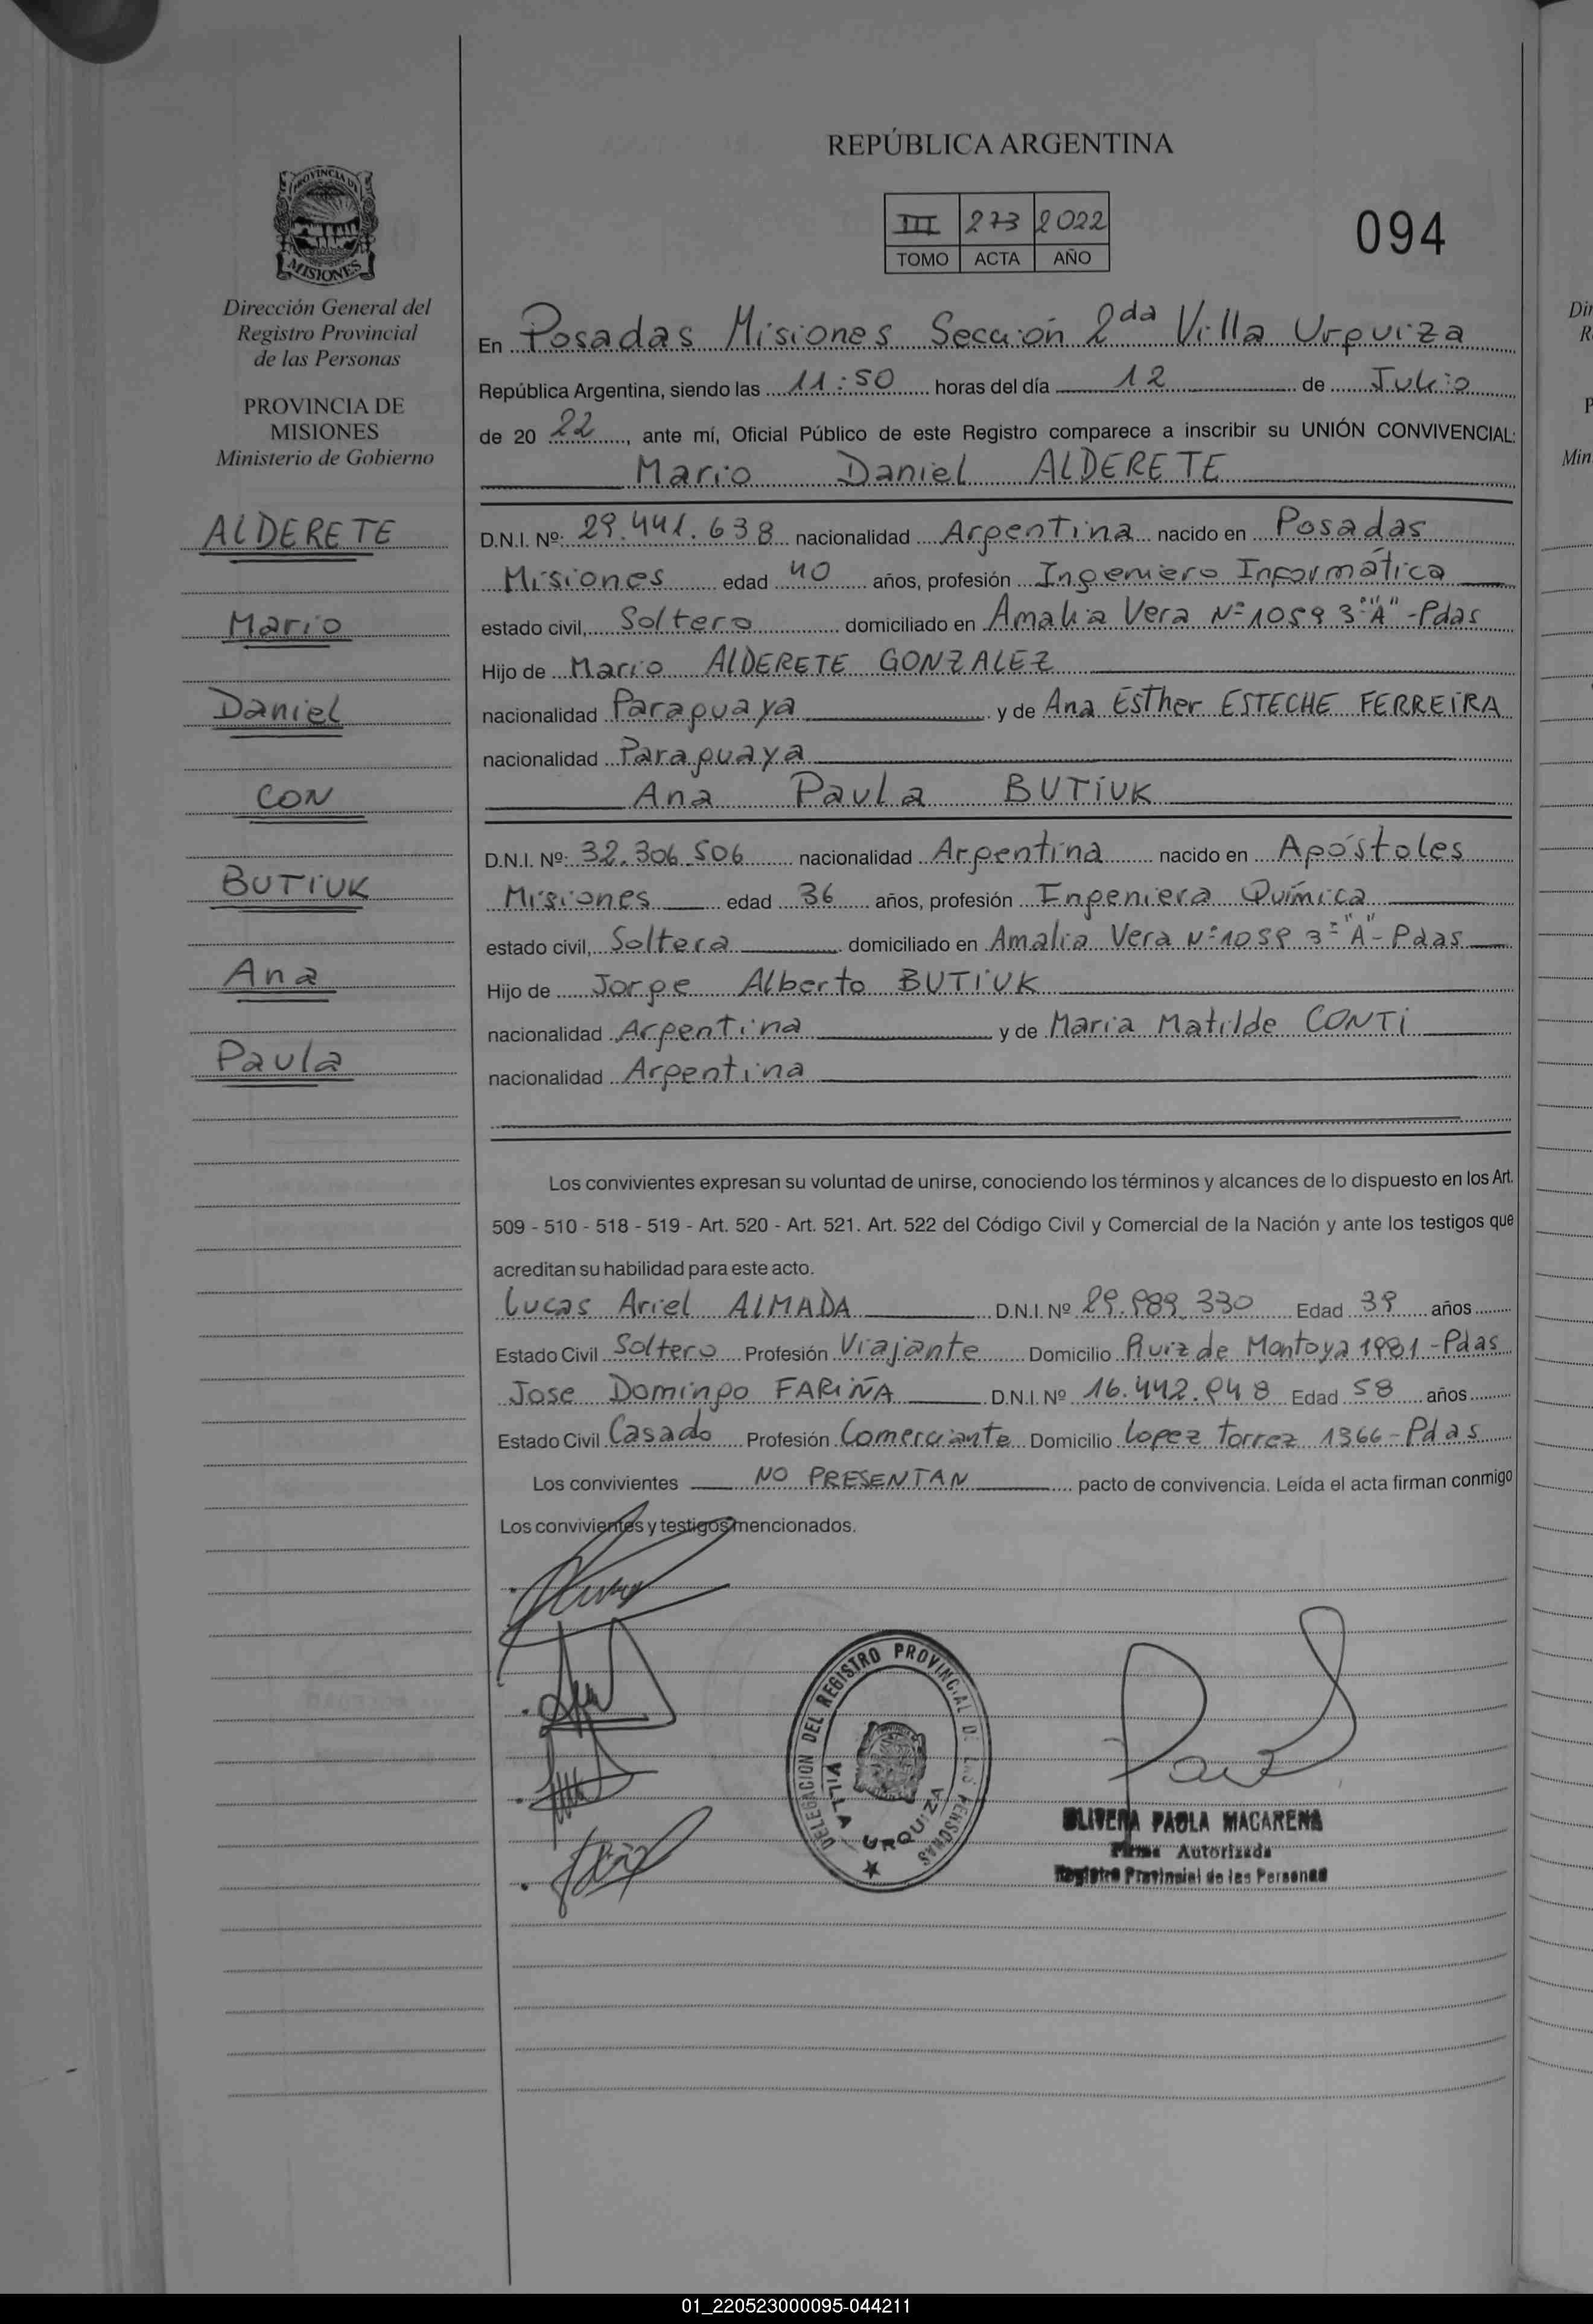 REPÚBLICA ARGENTINA
III 273 2022
TOMO ACTA AÑO
094
PROVINCIA DE
MISIONES
Dirección General del
Registro Provincial
de las Personas
PROVINCIA DE
MISIONES
Ministerio de Gobierno
ALDERETE
Mario
Daniel
CON
BUTIUK
Ana
Paula
En Posadas Misiones Sección 2da Villa Urquiza
República Argentina, siendo las 11:50 horas del día 12 de Julio
de 20 22, ante mí, Oficial Público de este Registro comparece a inscribir su UNIÓN CONVIVENCIAL:
Mario Daniel ALDERETE
D.N.I. Nº: 29.441.638 nacionalidad Argentina nacido en Posadas
Misiones edad 40 años, profesión Ingeniero Informática
estado civil, Soltero domiciliado en Amalia Vera Nº 1059 3º "A" - Pdas
Hijo de Mario ALDERETE GONZALEZ
nacionalidad Paraguaya y de Ana Esther ESTECHE FERREIRA
nacionalidad Paraguaya
Ana Paula BUTIUK
D.N.I. Nº: 32.306.506 nacionalidad Argentina nacido en Apóstoles
Misiones edad 36 años, profesión Ingeniera Química
estado civil, Soltera domiciliado en Amalia Vera Nº 1059 3º "A" - Pdas
Hijo de Jorge Alberto BUTIUK
nacionalidad Argentina y de Maria Matilde CONTI
nacionalidad Argentina
Los convivientes expresan su voluntad de unirse, conociendo los términos y alcances de lo dispuesto en los Art.
509 - 510 - 518 - 519 - Art. 520 - Art. 521. Art. 522 del Código Civil y Comercial de la Nación y ante los testigos que
acreditan su habilidad para este acto.
Lucas Ariel ALMADA D.N.I. Nº 29.989.330 Edad 39 años
Estado Civil Soltero Profesión Viajante Domicilio Ruiz de Montoya 1981 - Pdas
Jose Domingo FARIÑA D.N.I. Nº 16.442.848 Edad 58 años
Estado Civil Casado Profesión Comerciante Domicilio Lopez Torrez 1366 - Pdas
Los convivientes NO PRESENTAN pacto de convivencia. Leída el acta firman conmigo
Los convivientes y testigos mencionados.
DELEGACION DEL REGISTRO PROVINCIAL DE LAS PERSONAS
VILLA URQUIZA
OLIVERA PAOLA MACARENA
Firma Autorizada
Registro Provincial de las Personas
01_220523000095-044211